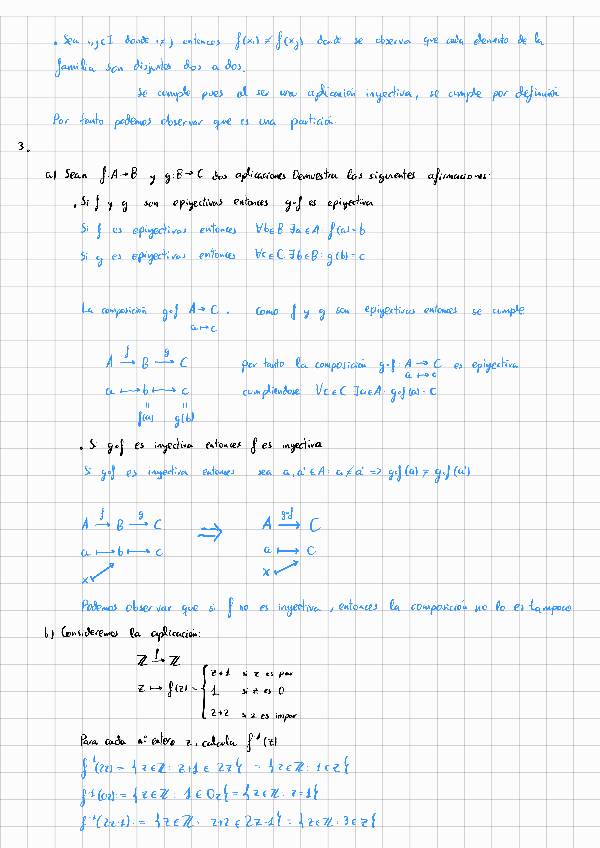 . Sea i,j∈I donde i≠j entonces f(xi) ≠ f(xj) donde se observa que cada elemento de la
familia son disjuntos dos a dos.
Se cumple pues al ser una aplicación inyectiva, se cumple por definición
Por tanto podemos observar que es una partición.
3.
a) Sean f:A→B y g:B→C dos aplicaciones Demuestra las siguientes afirmaciones:
. Si f y g son epiyectivas entonces g∘f es epiyectiva
Si f es epiyectivas entonces ∀b∈B ∃a∈A: f(a)=b
Si g es epiyectivas entonces ∀c∈C ∃b∈B: g(b)=c
La composición g∘f A→C. Como f y g son epiyectivas entonces se cumple
a↦c
A →f B →g C por tanto la composición g∘f: A→C es epiyectiva
a↦c
a ↦ b ↦ c cumpliendose ∀c∈C ∃a∈A: g∘f(a)=C
॥ ॥
f(a) g(b)
. Si g∘f es inyectiva entonces f es inyectiva
Si g∘f es inyectiva entonces sea a,a'∈A: a≠a' => g∘f(a) ≠ g∘f(a')
A →f B →g C ⇒ A →g∘f C
a ↦ b ↦ c a ↦ C
x↗ x↗
Podemos observar que si f no es inyectiva, entonces la composición no lo es tampoco
b) Consideremos la aplicación:
ℤ →f ℤ
z ↦ f(z) = { z+1 si z es par
1 si z es 0
z+2 si z es impar
Para cada nº entero z, calcula f⁻¹(z)
f⁻¹(2z) = {z∈ℤ: z+1∈2z} = {z∈ℤ: 1∈z}
f⁻¹(0z) = {z∈ℤ: 1∈0z} = {z∈ℤ: z=1}
f⁻¹(2z-1) = {z∈ℤ: z+2∈2z-1} = {z∈ℤ: 3∈z}